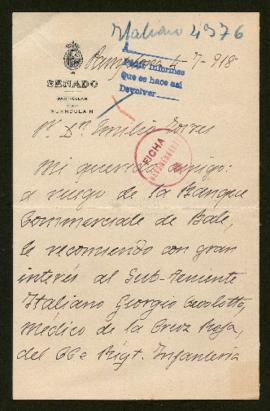 Italiano 4976
Pamplona 5-7-918-
Pedir informes
Que se hace así
Devolver
SENADO
PARTICULAR
Sr. Dn Emilio Torres
FICHA
Mi querido amigo:
a ruego de la Banque
Commerciale de Bale,
le recomiendo con gran
interés al Sub-Teniente
Italiano Giorgio
Médico de la Cruz Roja,
del 66e Rigt. Infanteria